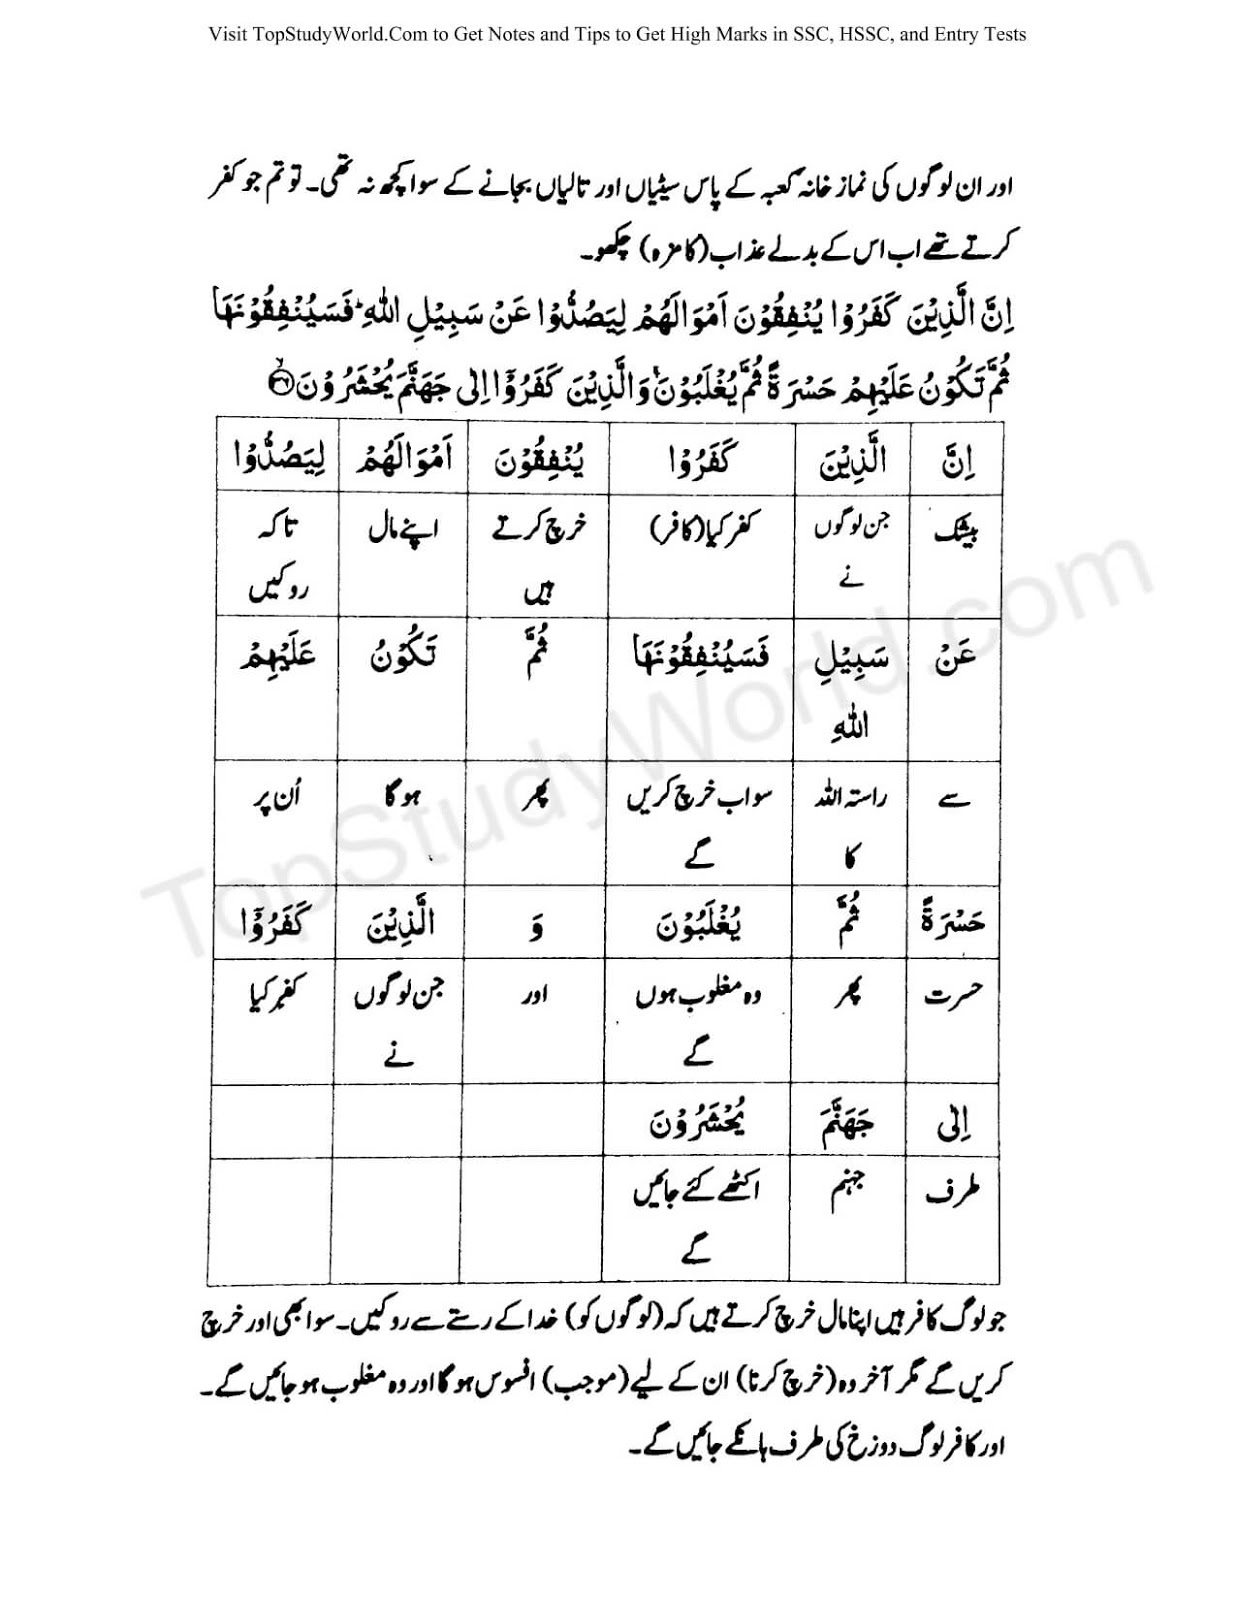 Visit TopStudyWorld.Com to Get Notes and Tips to Get High Marks in SSC, HSSC, and Entry Tests
اور ان لوگوں کی نماز خانہ کعبہ کے پاس سیٹیاں اور تالیاں بجانے کے سوا کچھ نہ تھی۔ تو تم جو کفر
کرتے تھے اب اس کے بدلے عذاب (کا مزہ) چکھو۔
اِنَّ الَّذِيْنَ كَفَرُوْا يُنْفِقُوْنَ اَمْوَالَهُمْ لِيَصُدُّوْا عَنْ سَبِيْلِ اللّٰهِ ؕ فَسَيُنْفِقُوْنَهَا
ثُمَّ تَكُوْنُ عَلَيْهِمْ حَسْرَةً ثُمَّ يُغْلَبُوْنَ ؕ وَالَّذِيْنَ كَفَرُوْٓا اِلٰى جَهَنَّمَ يُحْشَرُوْنَ ۙ﴿۳۶﴾
اِنَّ الَّذِيْنَ كَفَرُوْا يُنْفِقُوْنَ اَمْوَالَهُمْ لِيَصُدُّوْا
بیشک جن لوگوں کفر کیا (کافر) خرچ کرتے اپنے مال تاکہ
نے ہیں روکیں
عَنْ سَبِيْلِ فَسَيُنْفِقُوْنَهَا ثُمَّ تَكُوْنُ عَلَيْهِمْ
اللّٰهِ
سے راستہ اللہ سو اب خرچ کریں پھر ہوگا اُن پر
کا گے
حَسْرَةً ثُمَّ يُغْلَبُوْنَ وَ الَّذِيْنَ كَفَرُوْٓا
حسرت پھر وہ مغلوب ہوں اور جن لوگوں کفر کیا
گے نے
اِلٰى جَهَنَّمَ يُحْشَرُوْنَ
طرف جہنم اکٹھے کئے جائیں
گے
جو لوگ کافر ہیں اپنا مال خرچ کرتے ہیں کہ (لوگوں کو) خدا کے رستے سے روکیں۔ سو ابھی اور خرچ
کریں گے مگر آخر وہ (خرچ کرنا) ان کے لیے (موجب) افسوس ہوگا اور وہ مغلوب ہو جائیں گے۔
اور کافر لوگ دوزخ کی طرف ہانکے جائیں گے۔
TopStudyWorld.com